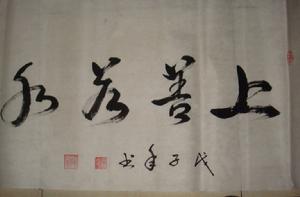 上善若水
戊子年书